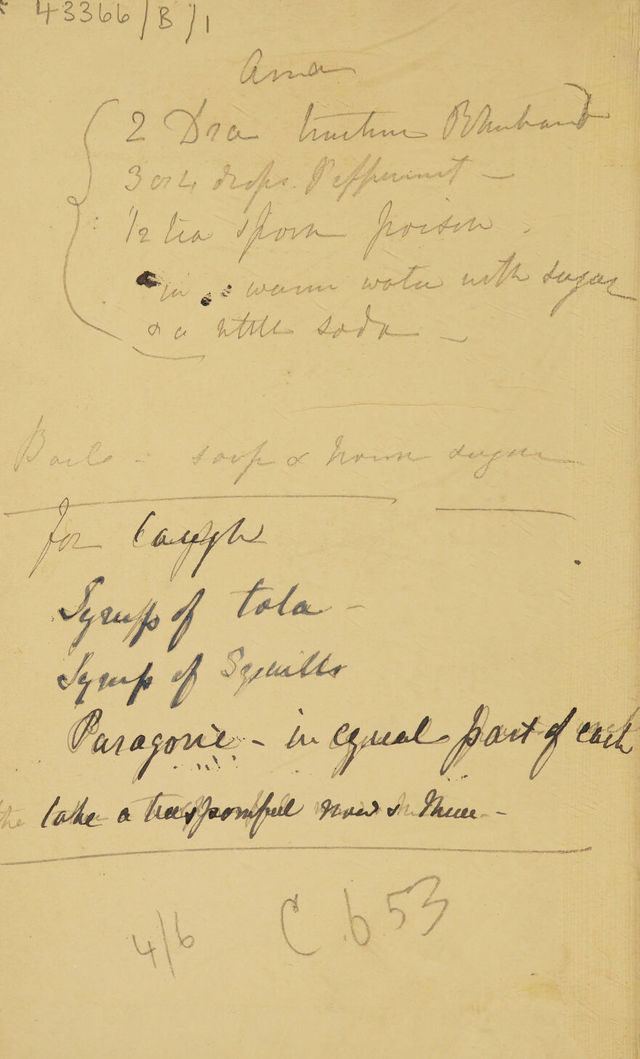 43366/B/1
2 Dra tincture Rhubarb
3 or 4 drops Peppermint —
1/2 tea spoon poison .
in warm water with sugar
& a little soda —
Boils - soap & brown sugar
for Caugh
Syrupp of tola —
Syrup of Squills
Paragoric - in equal part of each
take a teaspoonfull now & then —
4/6 C.653